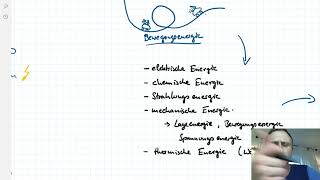 Bewegungsenergie
- elektrische Energie
- chemische Energie
- Strahlungsenergie
- mechanische Energie
→ Lageenergie, Bewegungsenergie
Spannungsenergie
- thermische Energie